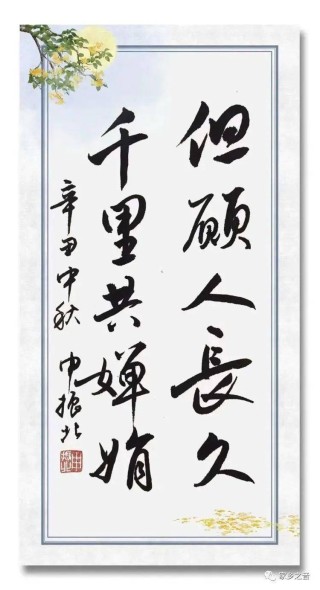 但願人長久
千里共嬋娟
辛丑中秋 申振北
家乡之音